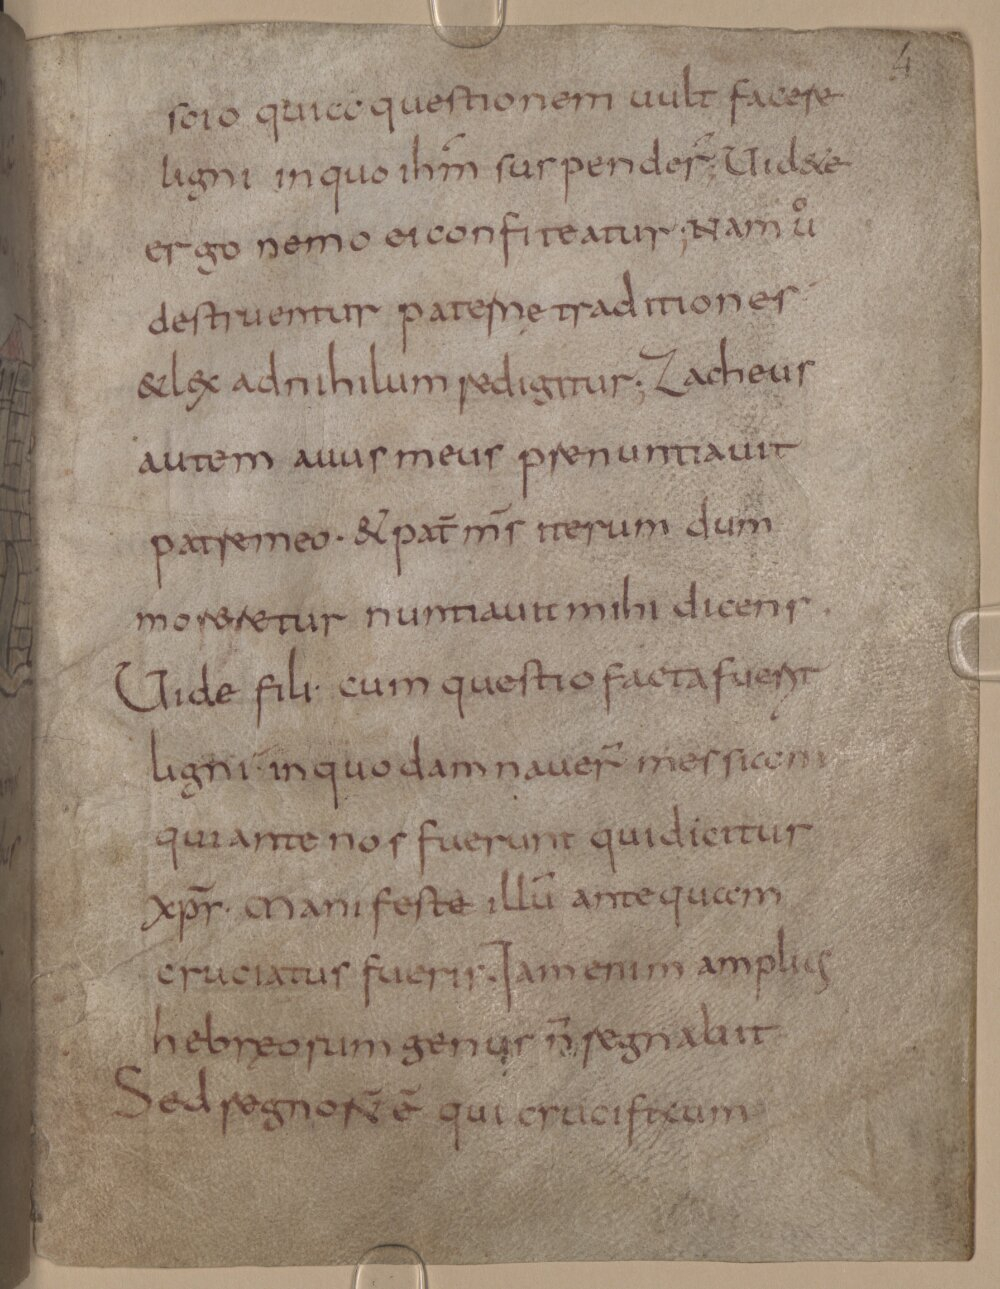 4
scio quia questionem uult facere
ligni in quo ihm̄ suspender̄; Uid&e
ergo nemo ei confiteatur; Nam uͦ
destruentur paterne traditiones
&lex adnihilum redigitur; Zacheus
autem auus meus prenuntiauit
patremeo. & pat̄ m̄s iterum dum
moreretur nuntiauit mihi dicens.
Uide fili. cum questio facta fuerit
ligni in quo damnauer̄ messiam
qui ante nos fuerunt qui dicitur
xp̄s. Manifeste illū ante quam
cruciatus fueris. Iam enim amplius
hebreorum genus n̄ regnabit
Sed regnor̄ ē qui crucifixum